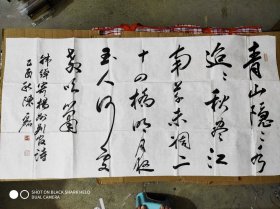 青山隱々水
迢々秋尽江
南草未凋二
十四橋明月夜
玉人何處
教吹簫
韩绰寄揚州判官诗
酉秋陳
SHOT ON BLACK SHARK HELO
DUAL CAMERA